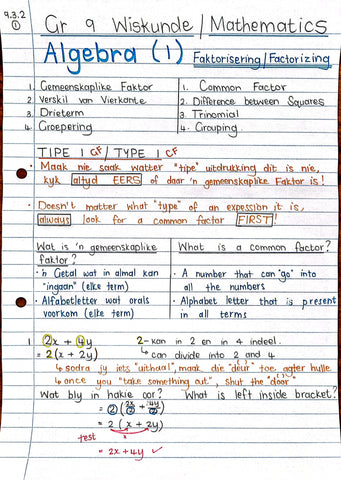 9.3.2
①
Gr 9 Wiskunde / Mathematics
Algebra (1) Faktorisering / Factorizing
1. Gemeenskaplike Faktor 1. Common Factor
2. Verskil van Vierkante 2. Difference between Squares
3. Drieterm 3. Trinomial
4. Groepering 4. Grouping.
TIPE 1 GF / TYPE 1 CF
• Maak nie saak watter "tipe" uitdrukking dit is nie,
kyk altyd EERS of daar 'n gemeenskaplike Faktor is!
• Doesn't matter what "type" of an expession it is,
always look for a common factor FIRST!
Wat is 'n gemeenskaplike What is a common factor?
faktor?
• 'n Getal wat in almal kan • A number that can "go" into
"ingaan" (elke term) all the numbers
• Alfabetletter wat orals • Alphabet letter that is present
voorkom (elke term) in all terms
1 2x + 4y 2- kan in 2 en in 4 indeel.
= 2(x + 2y) ↳ can divide into 2 and 4
↳ sodra jy iets "uithaal", maak die "deur" toe agter hulle
↳ once you "take something out", shut the "door"
Wat bly in hakie oor? What is left inside bracket?
= 2(2x/2 + 4y/2)
= 2(x + 2y)
test
= 2x + 4y ✓